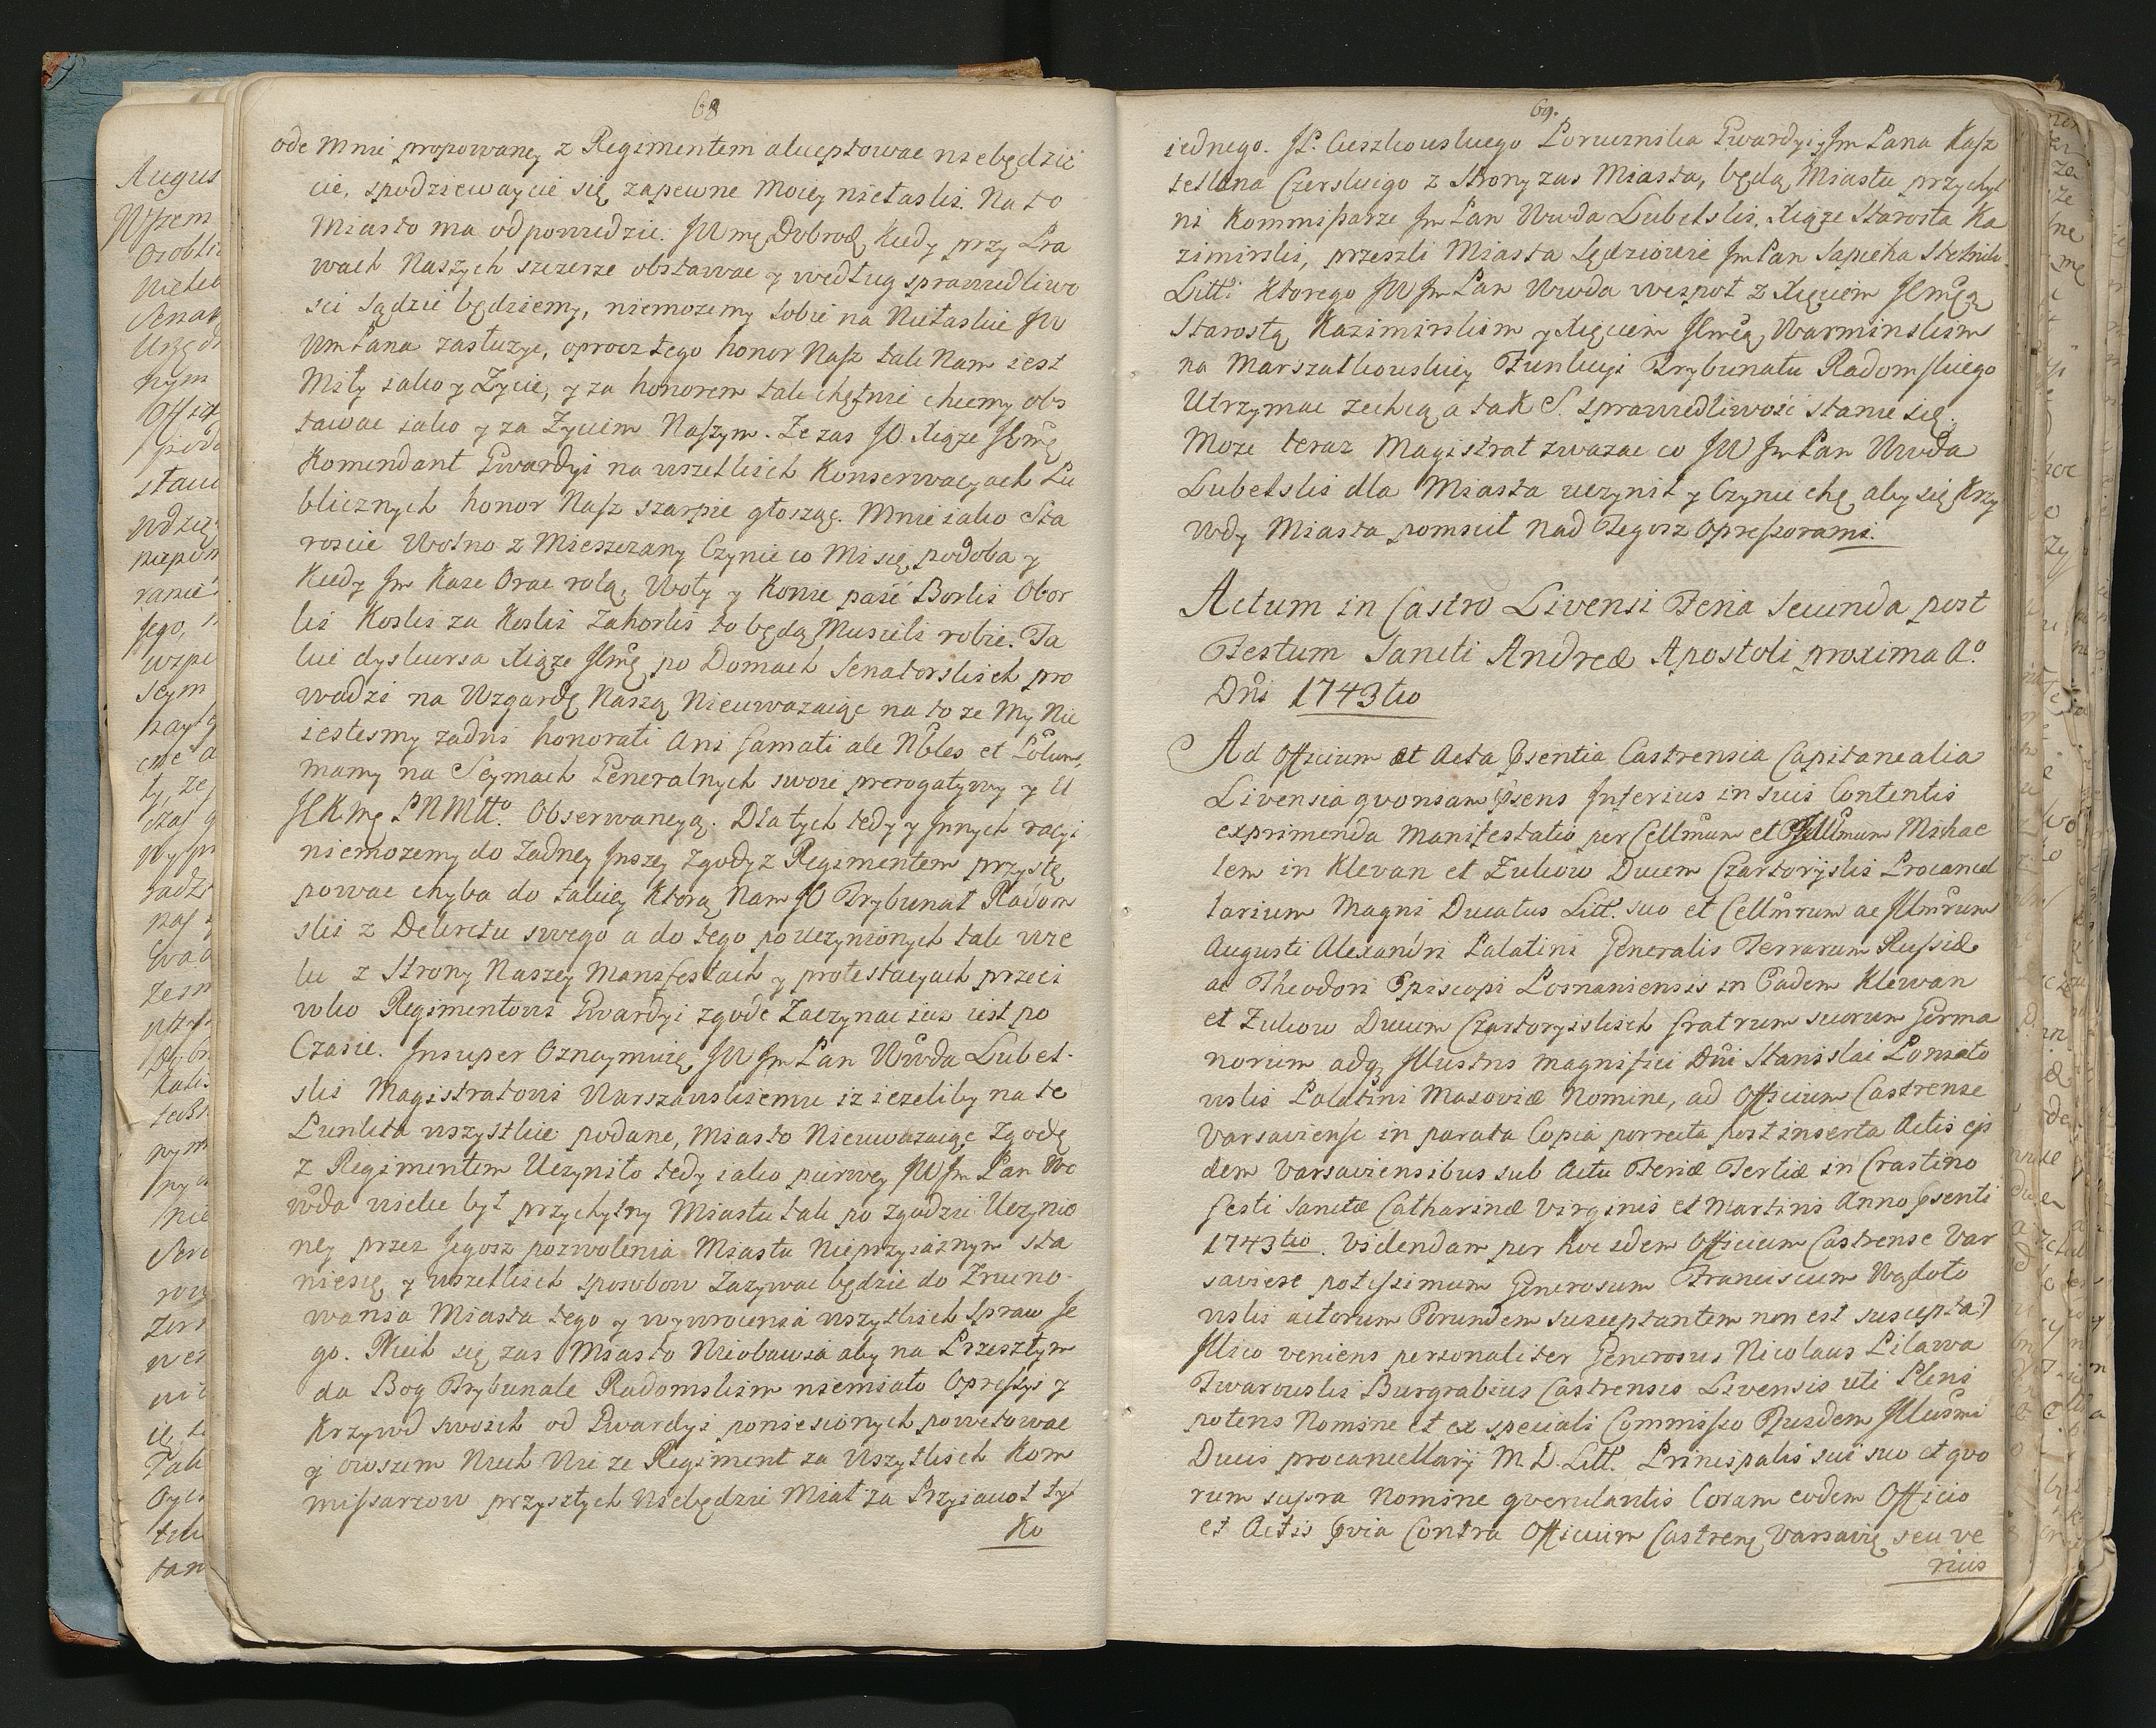 68
ode mnie propowaney z Regimentem akceptowac niebędzie
cie, spodziewaycie się zapewne Moiey nietaski. Na to
Miasto ma odpowiedzie. JWmę Dobrod. Kiedy przy Pra
wach Naszych szczerze obstawac y według sprawiedliwo
sci sądzie będziemy, niemozemy sobie na Nietaskie JW
WmPana zastuzyc, oprocz tego honor Nasz tak Nam iest
Miły iako y Zycie, y za honorem tak chętnie chcemy obs
tawac iako y za Zyciem Naszym. Ze zas JO. Xiąze JEmę
Komendant Gwardyi na wszetkich Konserwacyach Pu
blicznych honor Nasz szarpie głosząc. Mnie iako Sta
roscie Wolno z Mieszczany Czynie co Mi się podoba y
Kiedy Im Kaze Orac rolą, Woły y Konie paść Borki Obor
ki Koski za Koski Zahorki to będą Musieli robic. Ta
kie dyskursa Xiąze JEmę po Domach Senatorskich pro
wadzi na Wzgardę Naszą Nieuwazaiąc na to ze My Nie
iestesmy zadni honorati Ani famati ale Nobles et Polum.
mamy na Seymach Generalnych swoie prerogatywy y U
JKMę PNMtt. Obserwancyą. Dla tych tedy y Innych racyi
niemozemy do Zadney Inszey Zgody z Regimentem przystę
powac chyba do takiey Ktorą Nam JO Trybunał Radom
ski z Dekretu swego a do tego po uczynionych tak wie
lu z Strony Naszey Manifestach y protestacyach przeci
wko Regimentowi Gwardyi zgode Zaczynac iuz iest po
Czasie. Insuper Oznaymuię JW Im Pan Wwda Lubel-
ski Magistratowi Warszawskiemu iz iezeliby na te
Punkta wszystkie podane, Miasto Nieuwazaiąc Zgodę
z Regimentem Uczyniło tedy iako pierwey JW Im Pan Wo
wda wielce był przychylny Miastu tak po zgodzie Uczynio
ney przez Jegosz pozwolenia Miastu Nieprzyiaznym sta
niesię y wszetkich sposobow Zazywac będzie do Zruino-
wania Miasta tego y wywrocenia wszytkich Spraw Je
go. Niech się zas Miasto Nieobawia aby na Przesztym
da Bog Trybunale Radomskim niemiało Opressyi y
Krzywd swoich od Gwardyi poniesionych powetowac
y owszem Niech Wie ze Regiment za Wszytkich Kom
missarzow przysztych Niebędzie Miał za Przyiaciol tyl
Ko
69.
iednego. JP. Cieszkowskiego Porucznika Gwardyi y Im Pana Kasz
tellana Czerskiego z Strony zas Miasta, będą Miastu przychyl
ni Kommissarze Im Pan Wwda Lubelski, Xiąze Starosta Ka
zimirski, przeszli Miasta Sędziowie Im Pan Sapieha Stolnik
Litt: Ktorego JW Im Pan Wwda wespoł z Xięciem JEmęą
Starostą Kazimirskim y Xięciem JEmęą Warminskim
na Marszałkowskiey Funkcyi Trybunału Radomskiego
Utrzymac zechcą a tak S. sprawiedliwośc stanie się.
Moze teraz Magistrat zwazac co JW Im Pan Wwda
Lubelski dla Miasta uczynił y Czynic chę aby się Krzy
wdy Miasta pomscił nad Tegosz Opressorami.
Actum in Castro Livensi Feria Secunda post
Festum Sancti Andreæ Apostoli proxima Aº
Dni 1743tio
Ad Officium et Acta Psentia Castrensia Capitanealia
Livensia qvoniam Psens Inferius in suis Contentis
exprimenda Manifestatio per Cellmum et Illmum Michae
lem in Klevan et Zukow Ducem Czartoryski Procancel
larium Magni Ducatus Litt. suo et Cellmrum ac Illmrum
Augusti Alexandri Palatini Generalis Terrarum Russiæ
ac Theodori Episcopi Posnaniensis in Eadem Klewan
et Zukow Ducum Czartoryiskich fratrum suorum Germa
norum adq Illustris Magnifici Dni Stanislai Poniato
wski Palatini Masoviæ Nomine, ad Officium Castrense
Varsaviense in parata Copia porrecta post inserta Actis ejs
dem Varsaviensibus sub Actu Feriæ Tertiæ in Crastino
festi Sanctæ Catharinæ Virginis et Martiris Anno Psenti
1743tio. Videndam per hoc idem Officium Castrense Var
saviese potissimum Generosum Franciscum Wągłoto
wski actorum Eorundem susceptantem non est suscepta:)
Illico veniens personaliter Generosus Nicolaus Pilawa
Twarowski Burgrabius Castrensis Livensis uti Pleni
potens Nomine et ex speciali Commisso Ejusdem Illusmi
Ducis procancellarij M. D. Litt. Principalis sui suo et qvo
rum supra Nomine qverulantis Coram eodem Officio
et Actis Pvia Contra Officium Castren Varsavię seu ve
rius